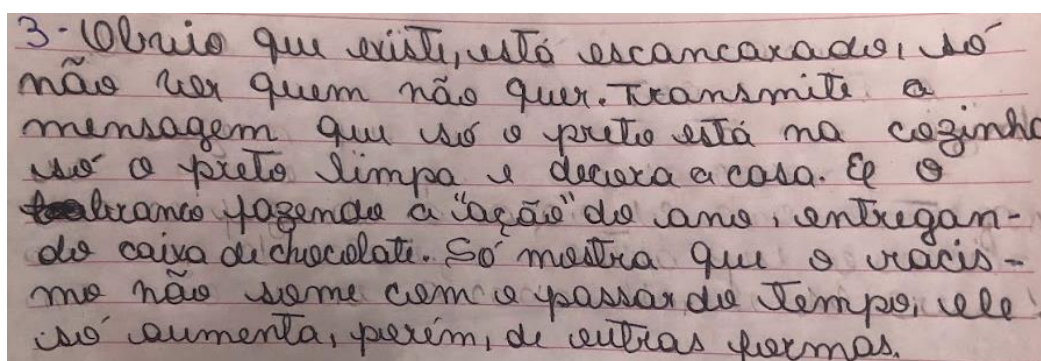 3- Obvio que existe, está escancarado, só
não ver quem não quer. Transmite a
mensagem que só o preto está na cozinha
só o preto limpa e decora a casa. E o
branco fazendo a "ação" do ano, entregan-
do caixa de chocolate. Só mostra que o racis-
mo não some com o passar do tempo, ele
só aumenta, porém, de outras formas.